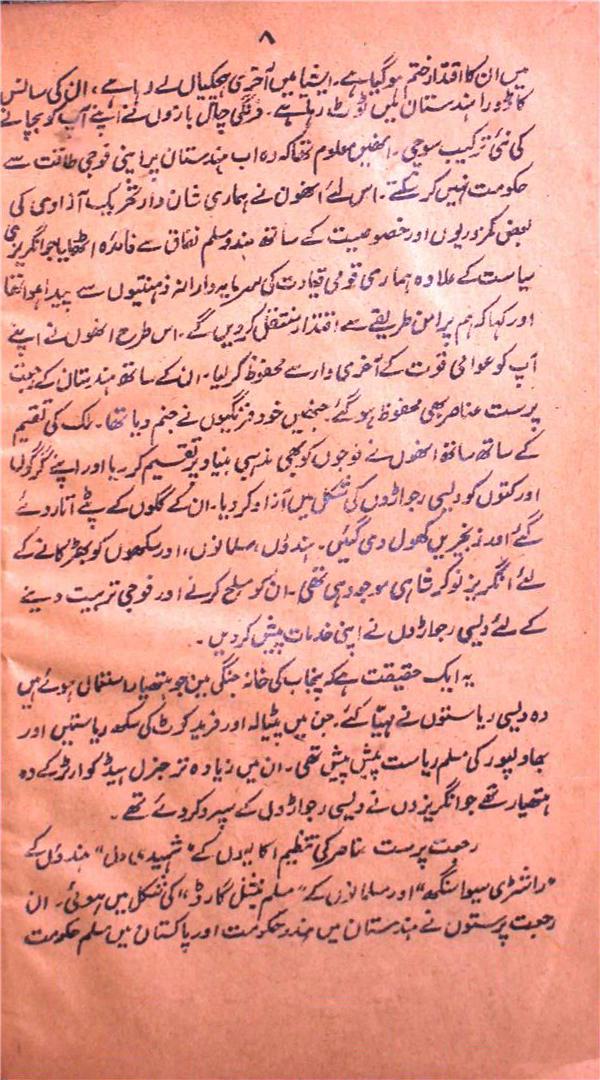 ۸
میں ان کا اقتدار ختم ہو گیا ہے۔ ایشیا میں آخری ہچکیاں لے رہا ہے، ان کی سانس
کا ڈورا ہندستان میں ٹوٹ رہا ہے۔ فرنگی چال بازوں نے اپنے آپ کو بچانے
کی نئی ترکیب سوچی۔ انھیں معلوم تھا کہ وہ اب ہندستان پر اپنی فوجی طاقت سے
حکومت نہیں کر سکتے۔ اس لئے انھوں نے ہماری شان دار تحریک آزادی کی
بعض کمزوریوں اور خصوصیت کے ساتھ ہندو مسلم نفاق سے فائدہ اٹھایا جو انگریزی
سیاست کے علاوہ ہماری قومی قیادت کی سرمایہ دارانہ ذہنیتوں سے پیدا ہوا تھا
اور کہا کہ ہم پر امن طریقے سے اقتدار منتقل کر دیں گے۔ اس طرح انھوں نے اپنے
آپ کو عوامی قوت کے آخری وار سے محفوظ کر لیا۔ ان کے ساتھ ہندستان کے رجعت
پرست عناصر بھی محفوظ ہو گئے۔ جنھیں خود فرنگیوں نے جنم دیا تھا۔ ملک کی تقسیم
کے ساتھ ساتھ انھوں نے فوجوں کو بھی مذہبی بنیاد پر تقسیم کر دیا اور اپنے گرگوں
اور کتوں کو دیسی رجواڑوں کی شکل میں آزاد کر دیا۔ ان کے گلوں کے پٹے اتار دئے
گئے اور زنجیریں کھول دی گئیں۔ ہندوں، مسلمانوں، اور سکھوں کو بھڑکانے کے
لئے انگریز نوکر شاہی موجود ہی تھی۔ ان کو مسلح کرنے اور فوجی تربیت دینے
کے لئے دیسی رجواڑوں نے اپنی خدمات پیش کر دیں۔
یہ ایک حقیقت ہے کہ پنجاب کی خانہ جنگی میں جو ہتھیار استعمال ہوئے ہیں
وہ دیسی ریاستوں نے مہیا کئے۔ جن میں پٹیالہ اور فرید کوٹ کی سکھ ریاستیں اور
بھاولپور کی مسلم ریاست پیش پیش تھی۔ ان میں زیادہ تر جنرل ہیڈ کوارٹر کے وہ
ہتھیار تھے جو انگریزوں نے دیسی رجواڑوں کے سپرد کر دئے تھے۔
رجعت پرست عناصر کی تنظیم اکالیوں کے "شہیدی دل" ہندوں کے
"راشٹری سیوا سنگھ" اور مسلمانوں کے "مسلم نیشنل گارڈ" کی شکل میں ہوئی۔ ان
رجعت پرستوں نے ہندستان میں ہندو حکومت اور پاکستان میں مسلم حکومت